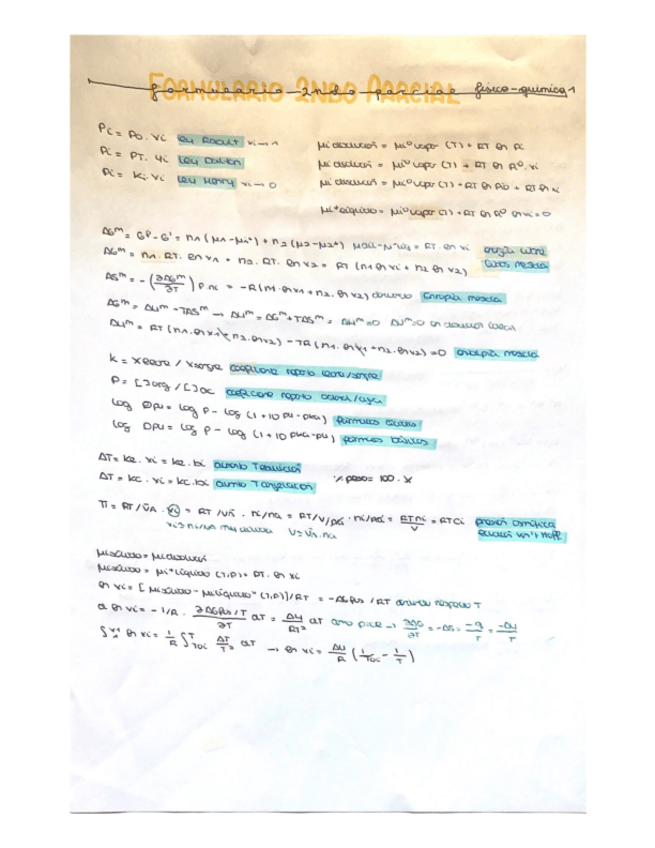 FORMULARIO 2NDO PARCIAL
formulario 2ndo parcial físico-química 1
Pi = Po. xi Ley Raoult xi→1
Pi = PT. yi Ley Dalton
Pi = Ki. xi Ley Henry xi→0
μi disolución = μi⁰ vapor (T) + RT ln Pi
μi disolución = μi⁰ vapor (T) + RT ln P⁰. xi
μi disolución = μi⁰ vapor (T) + RT ln Pi⁰ + RT ln xi
μi* líquido = μi⁰ vapor (T) + RT ln P⁰ ln xi = 0
ΔGᵐ = Gᶠ - Gⁱ = n1 (μ1 - μ1*) + n2 (μ2 - μ2*) = RT. ln xi energía libre
ΔGᵐ = n1. RT. ln x1 + n2. RT. ln x2 = RT (n1 ln x1 + n2 ln x2) Gibbs mezcla
ΔSᵐ = - (∂ΔGᵐ/∂T) P.ni = -R(n1. ln x1 + n2. ln x2) Entropía mezcla
ΔGᵐ = ΔHᵐ - TΔSᵐ → ΔHᵐ = ΔGᵐ + TΔSᵐ = ΔHᵐ=0 ΔVᵐ=0 en disolución ideal
ΔHᵐ = RT (n1. ln x1 + n2. ln x2) - TR (n1. ln x1 + n2. ln x2) = 0 entalpía mezcla
K = x leche / x sangre coeficiente reparto leche/sangre
P = [ ]org / [ ]ac coeficiente reparto octanol/agua
log DpH = log P - log (1 + 10 pH - pKa) fármacos ácidos
log DpH = log P - log (1 + 10 pKa - pH) fármacos básicos
ΔT = Ke. xi = Ke. bi aumento T ebullición
ΔT = Kc. xi = Kc. bi T congelación
% peso = 100. x
Π = RT / V̄A . xi = RT / V̄A . ni/na = RT/V/ = RTni/V = RTCi presión osmótica
ecuación van't Hoff
xi = ni/na muy diluida V = V̄A. na
μi sólido = μi disolución
μi sólido = μi* líquido (T,P) + RT. ln xi
ln xi = [μi sólido - μi líquido* (T,P)]/RT = -ΔGfus /RT derivando respecto T
d ln xi = -1/R . ∂ΔGfus/T / ∂T dT = ΔH/RT² dT → ∂ΔG/∂T = -ΔS = -q/T = -ΔH/T
∫ ln xi = 1/R ∫ ΔH/T² dT → ln xi = ΔH/R (1/Tfus - 1/T)